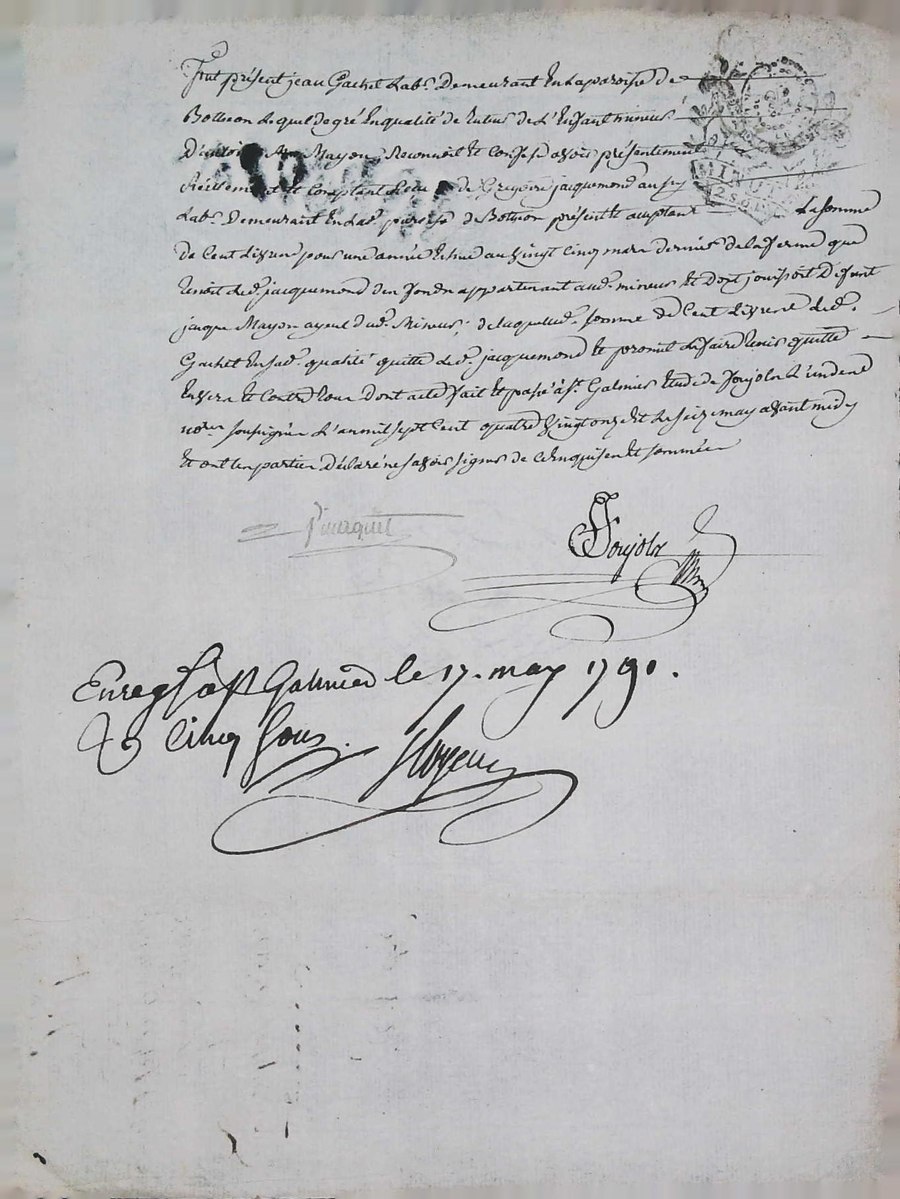 Fut présent jean Gachet Labr. Demeurant En La paroisse de
Botheon Lequel de gré En qualité de tuteur de L'Enfant mineur
D'antoine Mayon, Reconnoit Et Confesse avoir présentement
Réellement Et Comptant Reçu de Gregoire jacquemond aussy
Labr. Demeurant En Lad. paroisse de Botheon présent Et acceptant La somme
de Cent Livres pour une année Echue au vingt Cinq mars dernier de la ferme que
tenoit led. jacquemond des fonds appartenant aud. mineur Et dont jouissoit Défunt
jacque Mayon ayeul dud. Mineur, de laquelle somme de Cent Livres led.
Gachet En sad. qualité quitte led. jacquemond Et promet Le faire tenir quitte
Envers Et Contre tous dont acte fait Et passé à St. Galmier Etude de Foujols L'un des
nores. soussignés L'an mil sept Cent quatre vingt onze Et Le seize may avant midy
Et ont Les parties déclaré ne savoir signer de Ce Enquises Et sommées
Foujols
Enreg. à St Galmier le 17. may 1791.
R. Cinq sous.